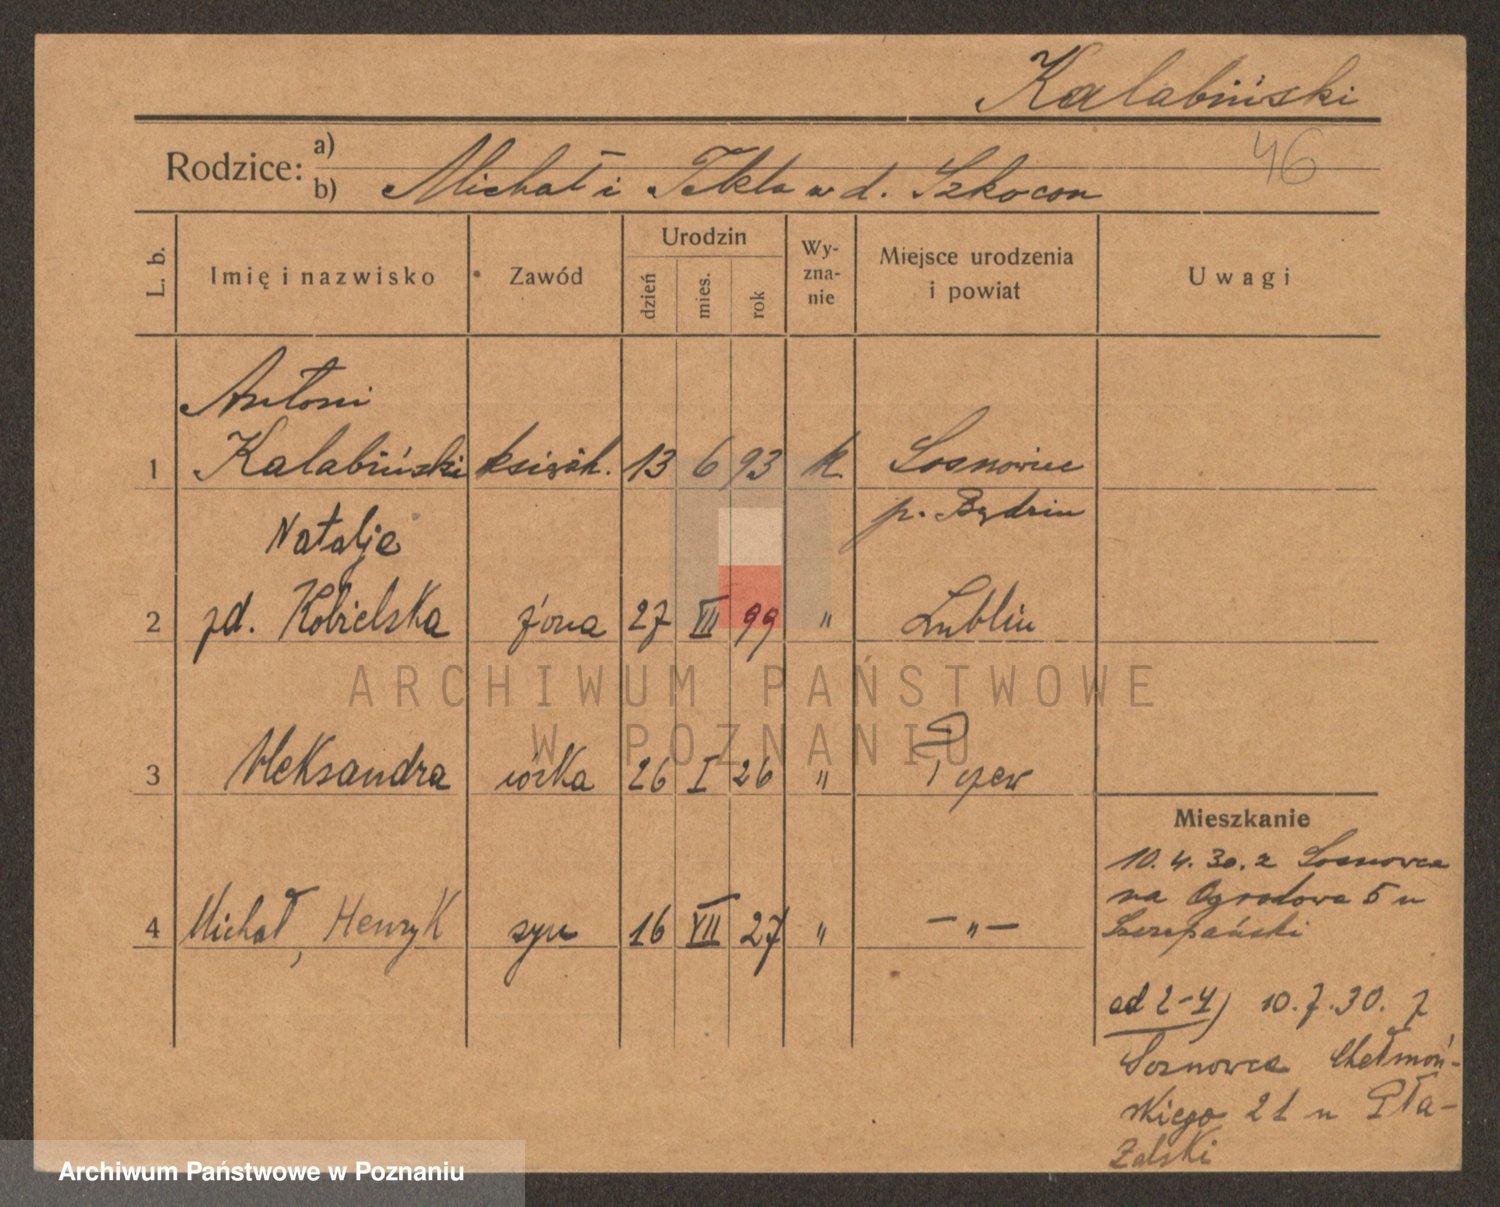 Kalabiński
46
Rodzice: a)
b) Michał i Tekla w d. Szkocon
L. b.
Imię i nazwisko
Zawód
Urodzin
dzień
mies.
rok
Wy-
zna-
nie
Miejsce urodzenia
i powiat
Uwagi
Antoni
1 Kalabiński księgh. 13 6 93 k. Sosnowiec
p. Będzin
Natalje
2 zd. Kobielska żona 27 VII 99 " Lublin
3 Aleksandra córka 26 I 26 "
4 Michał, Henryk syn 16 VII 27 " — " —
Mieszkanie
10.4.30. z Sosnowca
na Ogrodowa 5 u
Szczepański
ad 2-4) 10.7.30. z
Sosnowca Chełmoń-
skiego 21 u Pła-
żalski
ARCHIWUM PAŃSTWOWE
W POZNANIU
Archiwum Państwowe w Poznaniu